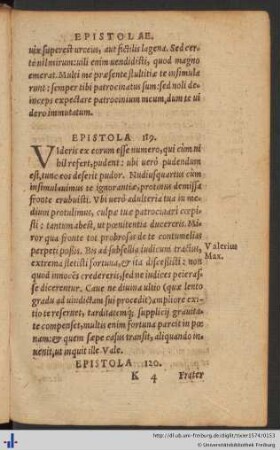 EPISTOLAE.
uix superest urceus, aut fictilis lagena. Sed cer
tè nil mirum: uili enim uendidisti, quod magno
emerat. Multi me præsente stultitiæ te insimula
runt: semper tibi patrocinatus sum: sed noli de-
inceps expectare patrocinium meum, dum te ui
dero immutatum.
EPISTOLA 119.
Videris ex eorum esse numero, qui cùm ni
bil refert, pudent: ubi uerò pudendum
est, tunc eos deserit pudor. Nudiusquartus cùm
insimulauimus te ignorantiæ, protinus demissa
fronte erubuisti. Vbi uerò adulteria tua in me
dium protulimus, culpæ tuæ patrocinari cœpi-
sti: tantùm abest, ut pœnitentia ducereris. Mi
ror qua fronte tot probrosas de te contumelias
perpeti possis. Bos ad subsellia iudicum tractus,
extrema stetisti fortuna, & ita discessisti: non
quod innocẽs credereris, sed ne iudices peieras-
se dicerentur. Caue ne diuina ultio (quæ lento
gradu ad uindictam sui procedit) ampliore exi-
tio te reseruet, tarditatemq́; supplicij grauita-
te compenset, multis enim fortuna parcit in pœ
nam: & quem sæpe casus transit, aliquando in-
uenit, ut inquit ille. Vale.
Valerius
Max.
EPISTOLA 120.
K 4 Frater
http://dl.ub.uni-freiburg.de/diglit/txier1574/0153
Universitätsbibliothek Freiburg